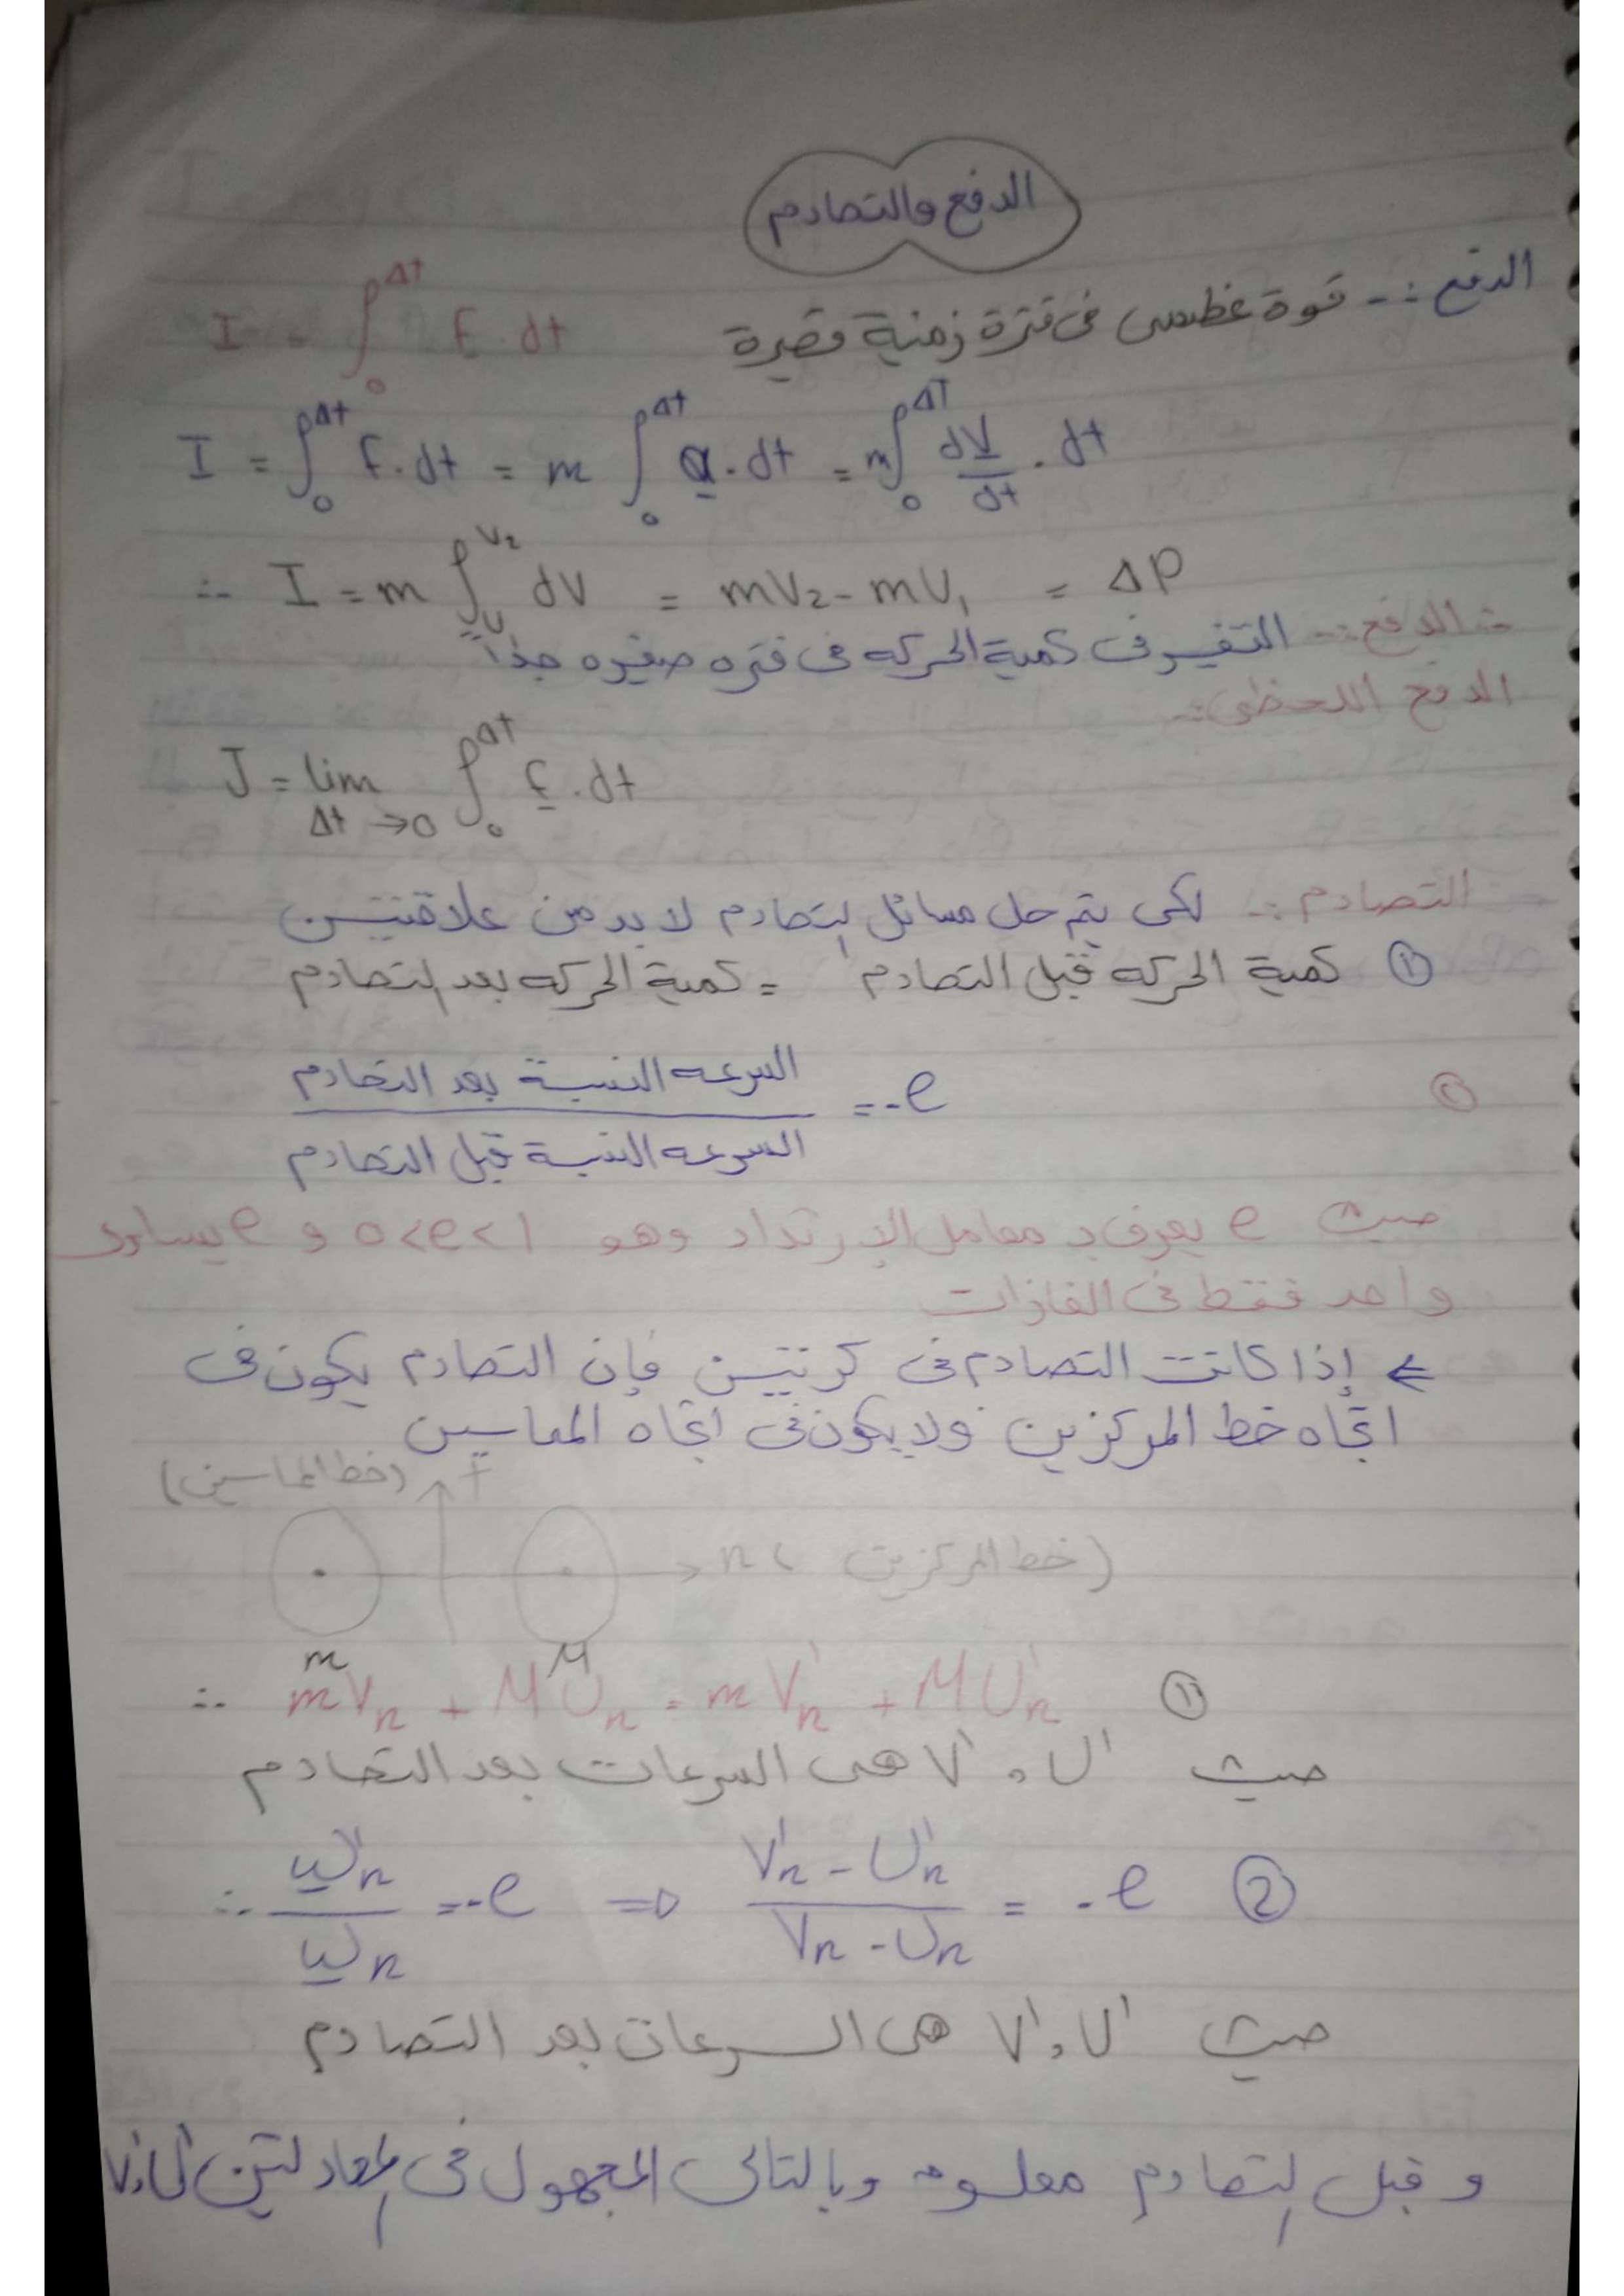 الدفع والتصادم
الدفع :- قوة عظمى فى فترة زمنية قصيرة I = ∫₀^Δt F . dt
I = ∫₀^Δt F . dt = m ∫₀^Δt a . dt = m ∫₀^ΔT dV/dt . dt
∴ I = m ∫_V₁^V₂ dV = mV₂ - mV₁ = ΔP
∴ الدفع :- التغير فى كمية الحركه فى فتره صغيره جداً
الدفع اللحظى :-
J = lim Δt → 0 ∫₀^Δt F . dt
التصادم :- لكى يتم حل مسائل التصادم لا بد من علاقتين
① كمية الحركه قبل التصادم = كمية الحركه بعد التصادم
② السرعه النسبية بعد التصادم / السرعه النسبية قبل التصادم = -e
حيث e يعرف بـ معامل الإرتداد وهو 0<e<1 و e يساوى
واحد فقط فى الغازات
⇐ إذا كانت التصادم فى كرتين فإن التصادم يكون فى
اتجاه خط المركزين ولا يكون فى اتجاه المماسين
t (خط المماسين)
n (خط المركزين)
m M
∴ mVn + MUn = mV'n + MU'n ①
حيث U' و V' هى السرعات بعد التصادم
∴ W'n / Wn = -e ⇒ V'n - U'n / Vn - Un = -e ②
حيث U' و V' هى السرعات بعد التصادم
و قبل التصادم معلومه وبالتالى المجهول فى المعادلتين U' و V'